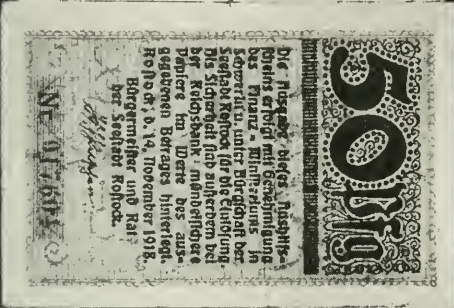 50 Pfg
Die Ausgabe dieses Aushilfs-
scheins erfolgt mit Genehmigung
des Finanz-Ministeriums in
Schwerin u. unter Bürgschaft der
Seestadt Rostock für die Einlösung.
Als Sicherheit sind außerdem bei
der Reichsbank mündelsichere
Papiere im Werte des aus-
gegebenen Betrages hinterlegt.
Rostock, d. 14. November 1918.
Bürgermeister und Rat
der Seestadt Rostock.
Nr.